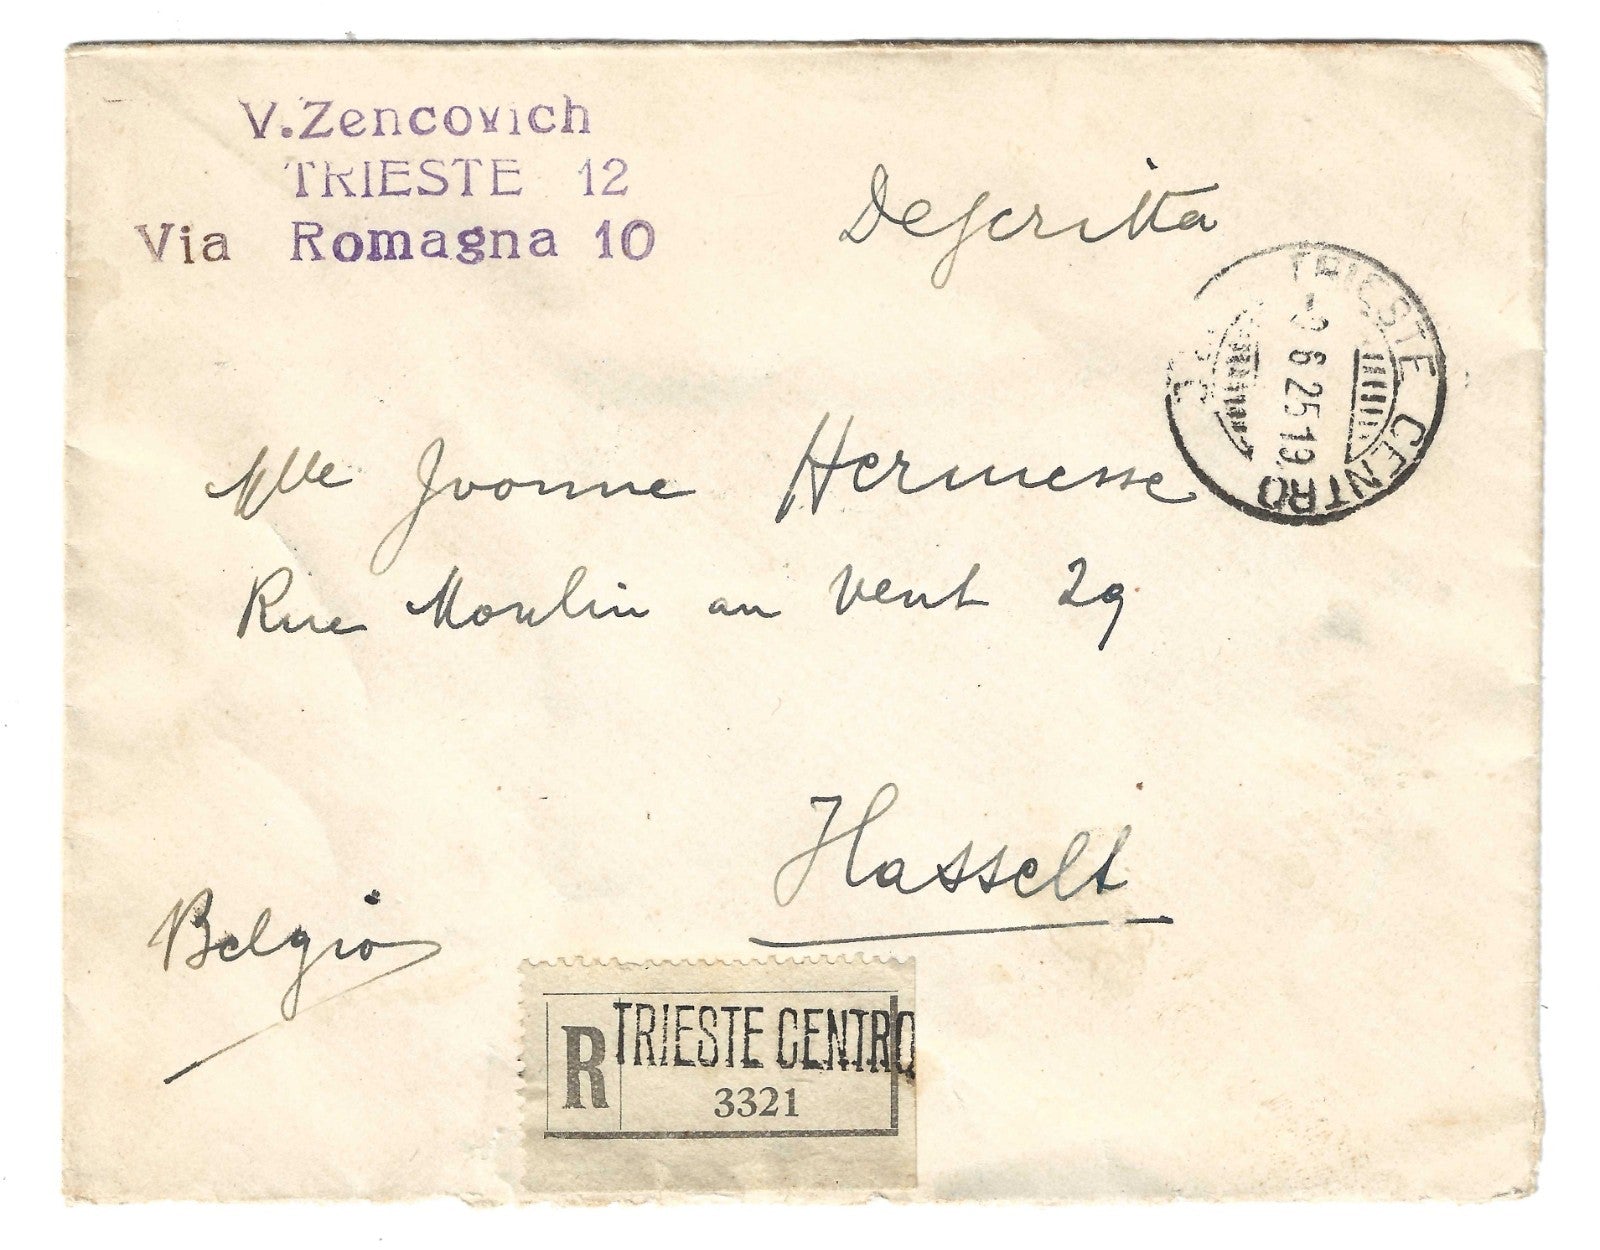 V.Zencovich
TRIESTE 12
Via Romagna 10
Descritta
TRIESTE CENTRO
6 25 19
Mlle Yvonne Hermesse
Rue Moulin au vent 29
Hasselt
Belgio
R TRIESTE CENTRO
3321